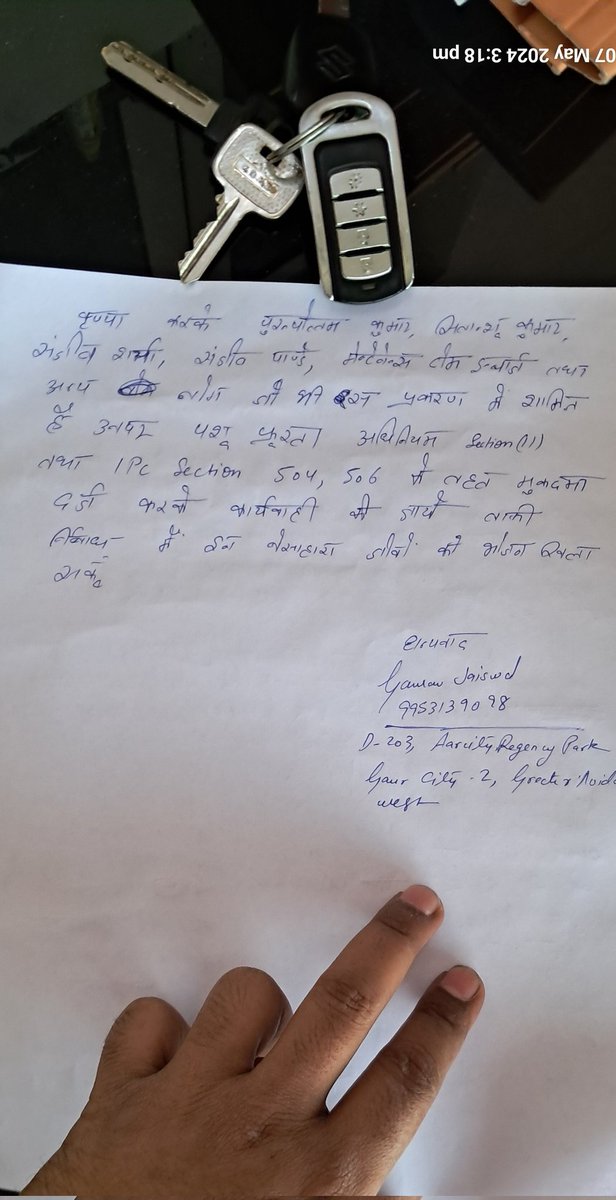 07 May 2024 3:18 pm
कृप्या करके पुरुषोत्तम कुमार, सितान्शू कुमार,
संजीव शर्मा, संजीव पाण्डे, मेन्टेनेन्स टीम इन्चार्ज तथा
अन्य लोग जो भी इस प्रकरण में शामिल
हैं उनपर पशू क्रूरता अधिनियम Section (11)
तथा IPC Section 504, 506 के तहत मुकदमा
दर्ज करके कार्यवाही की जाये ताकी
में इन बेसाहारा जीवों को भोजन खिला
सकें
धन्यवाद
Gaurav Jaiswal
9953139098
D-203, Aarcity Regency Park
Gaur City-2, Greater Noida
west